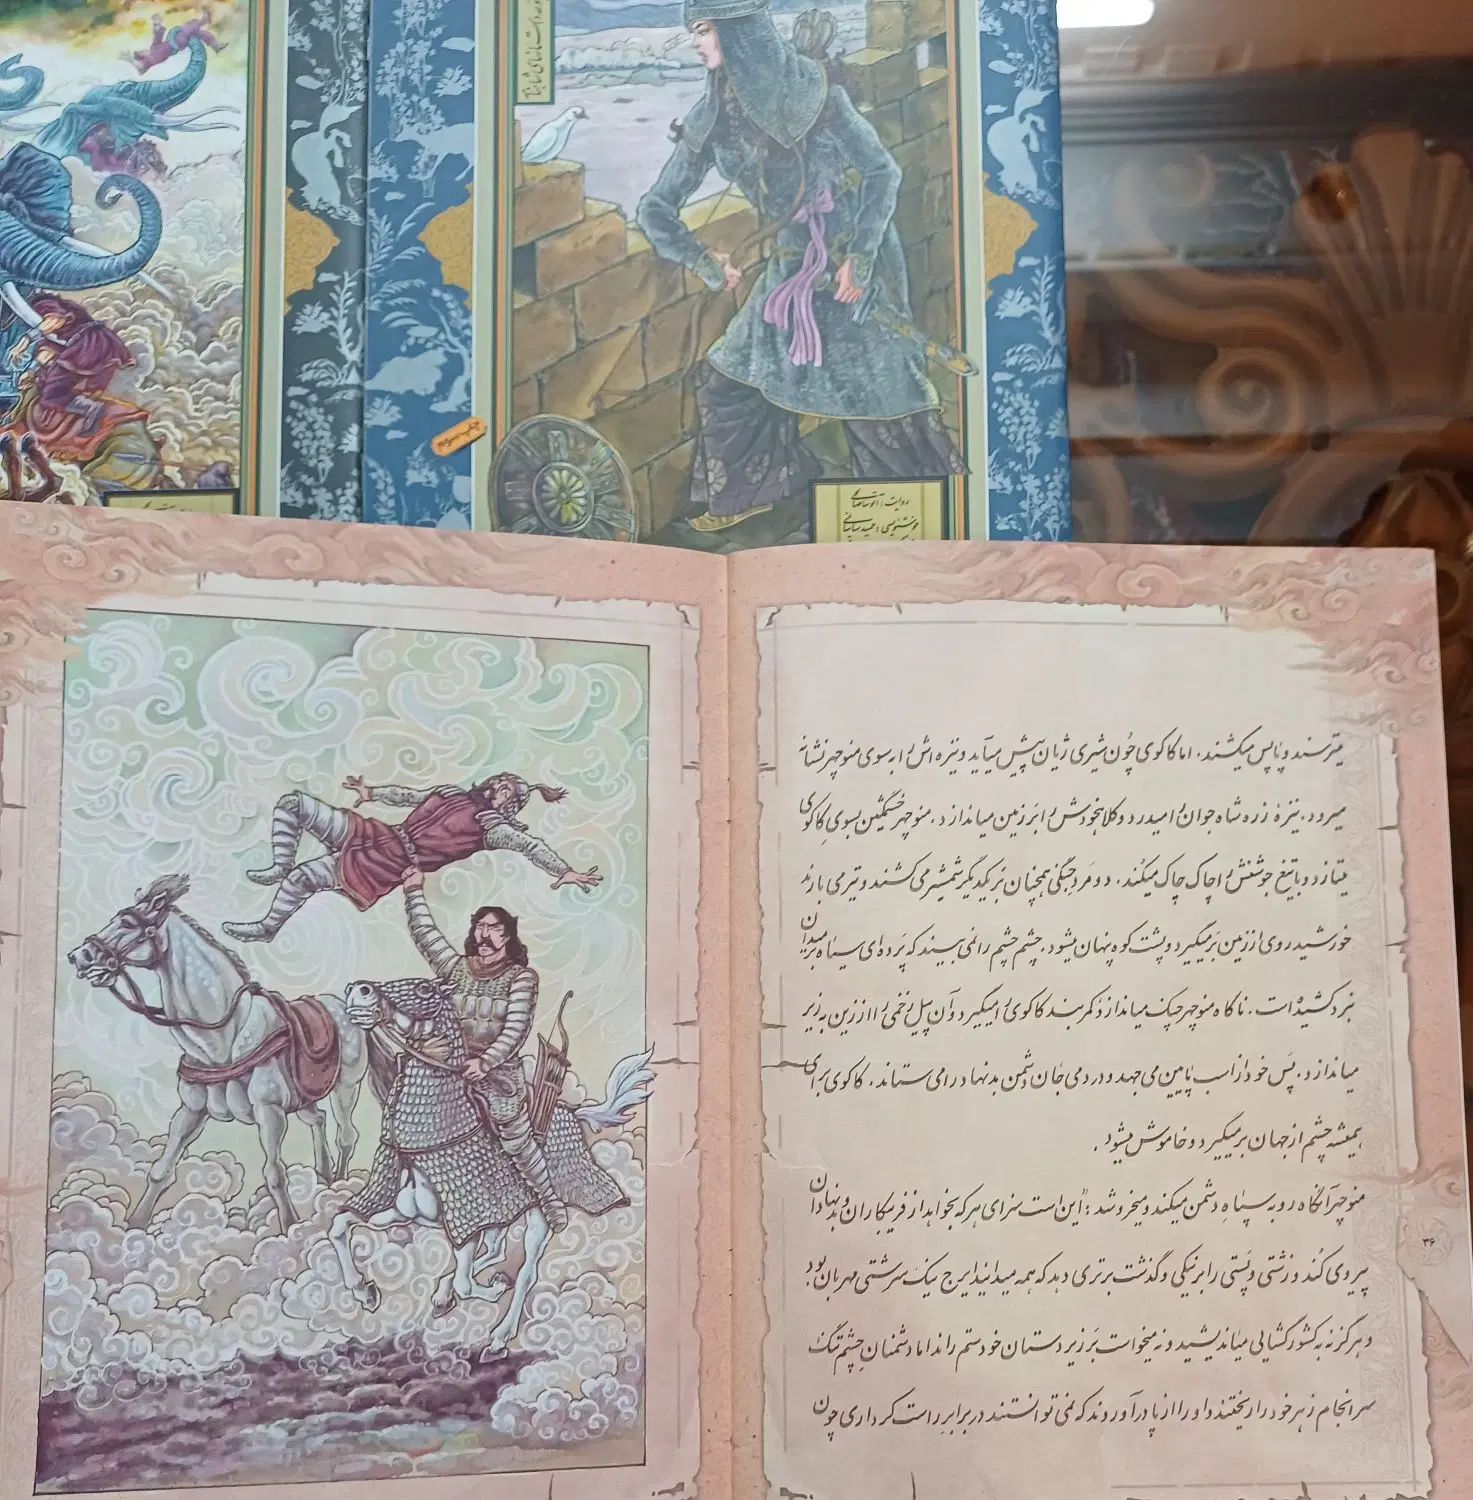 روایت: آتوسا صالحی
خوشنویسی: حمید ساسانی
میترسند و پاپس میکشند. اما کاکوی چون شیری ژیان پیش میآید و نیزه اش را به سوی منوچهر نشانه
میرود. نیزهٔ زره شاه جوان را میدرد و کلاهخودش را بر زمین میاندازد. منوچهر خشمگین بسوی کاکوی
میتازد و با تیغ جوشنش را چاک چاک میکند. دو مرد جنگی همچنان بر یکدیگر شمشیر می کشند و تیر می بارند
خورشید روی از زمین بر میگیرد و پشت کوه پنهان میشود. چشم چشم را نمی بیند که پرده ای سیاه بر میدان
نبرد کشیده است. ناگاه منوچهر چنگ میاندازد کمربند کاکوی را میگیرد و آن پیل زخمی را از زین به زیر
میاندازد. پس خود از اسب پایین می جهد و در دمی جان دشمن بدنهاد را می ستاند. کاکوی برای
همیشه چشم از جهان بر میگیرد و خاموش میشود.
منوچهر آنگاه رو به سپاه دشمن میکند و میخروشد: "این است سزای هر که بخواهد از فریبکاران و بدنهادان
پیروی کند و زشتی و پستی را بر نیکی و گذشت برتری دهد که همه میدانید ایرج نیک سرشتی مهربان بود
و هرگز نه به کشورگشایی میاندیشید و نه میخواست بر زیردستان خود ستم راند اما دشمنان چشم تنگ
سرانجام زهر خود را ریختند و او را از پا درآوردند که نمی توانستند در برابر راست کرداری چون
۳۶